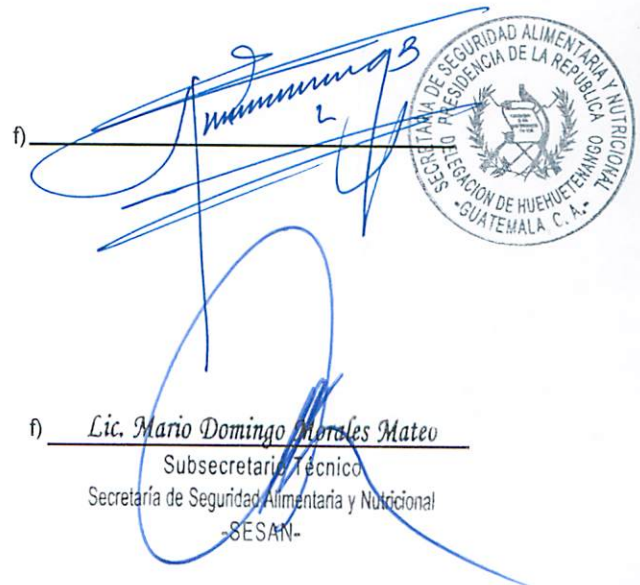 f)
SECRETARIA DE SEGURIDAD ALIMENTARIA Y NUTRICIONAL
PRESIDENCIA DE LA REPUBLICA
DELEGACION DE HUEHUETENANGO
-GUATEMALA, C. A.-
f) Lic. Mario Domingo Morales Mateo
Subsecretario Técnico
Secretaría de Seguridad Alimentaria y Nutricional
-SESAN-